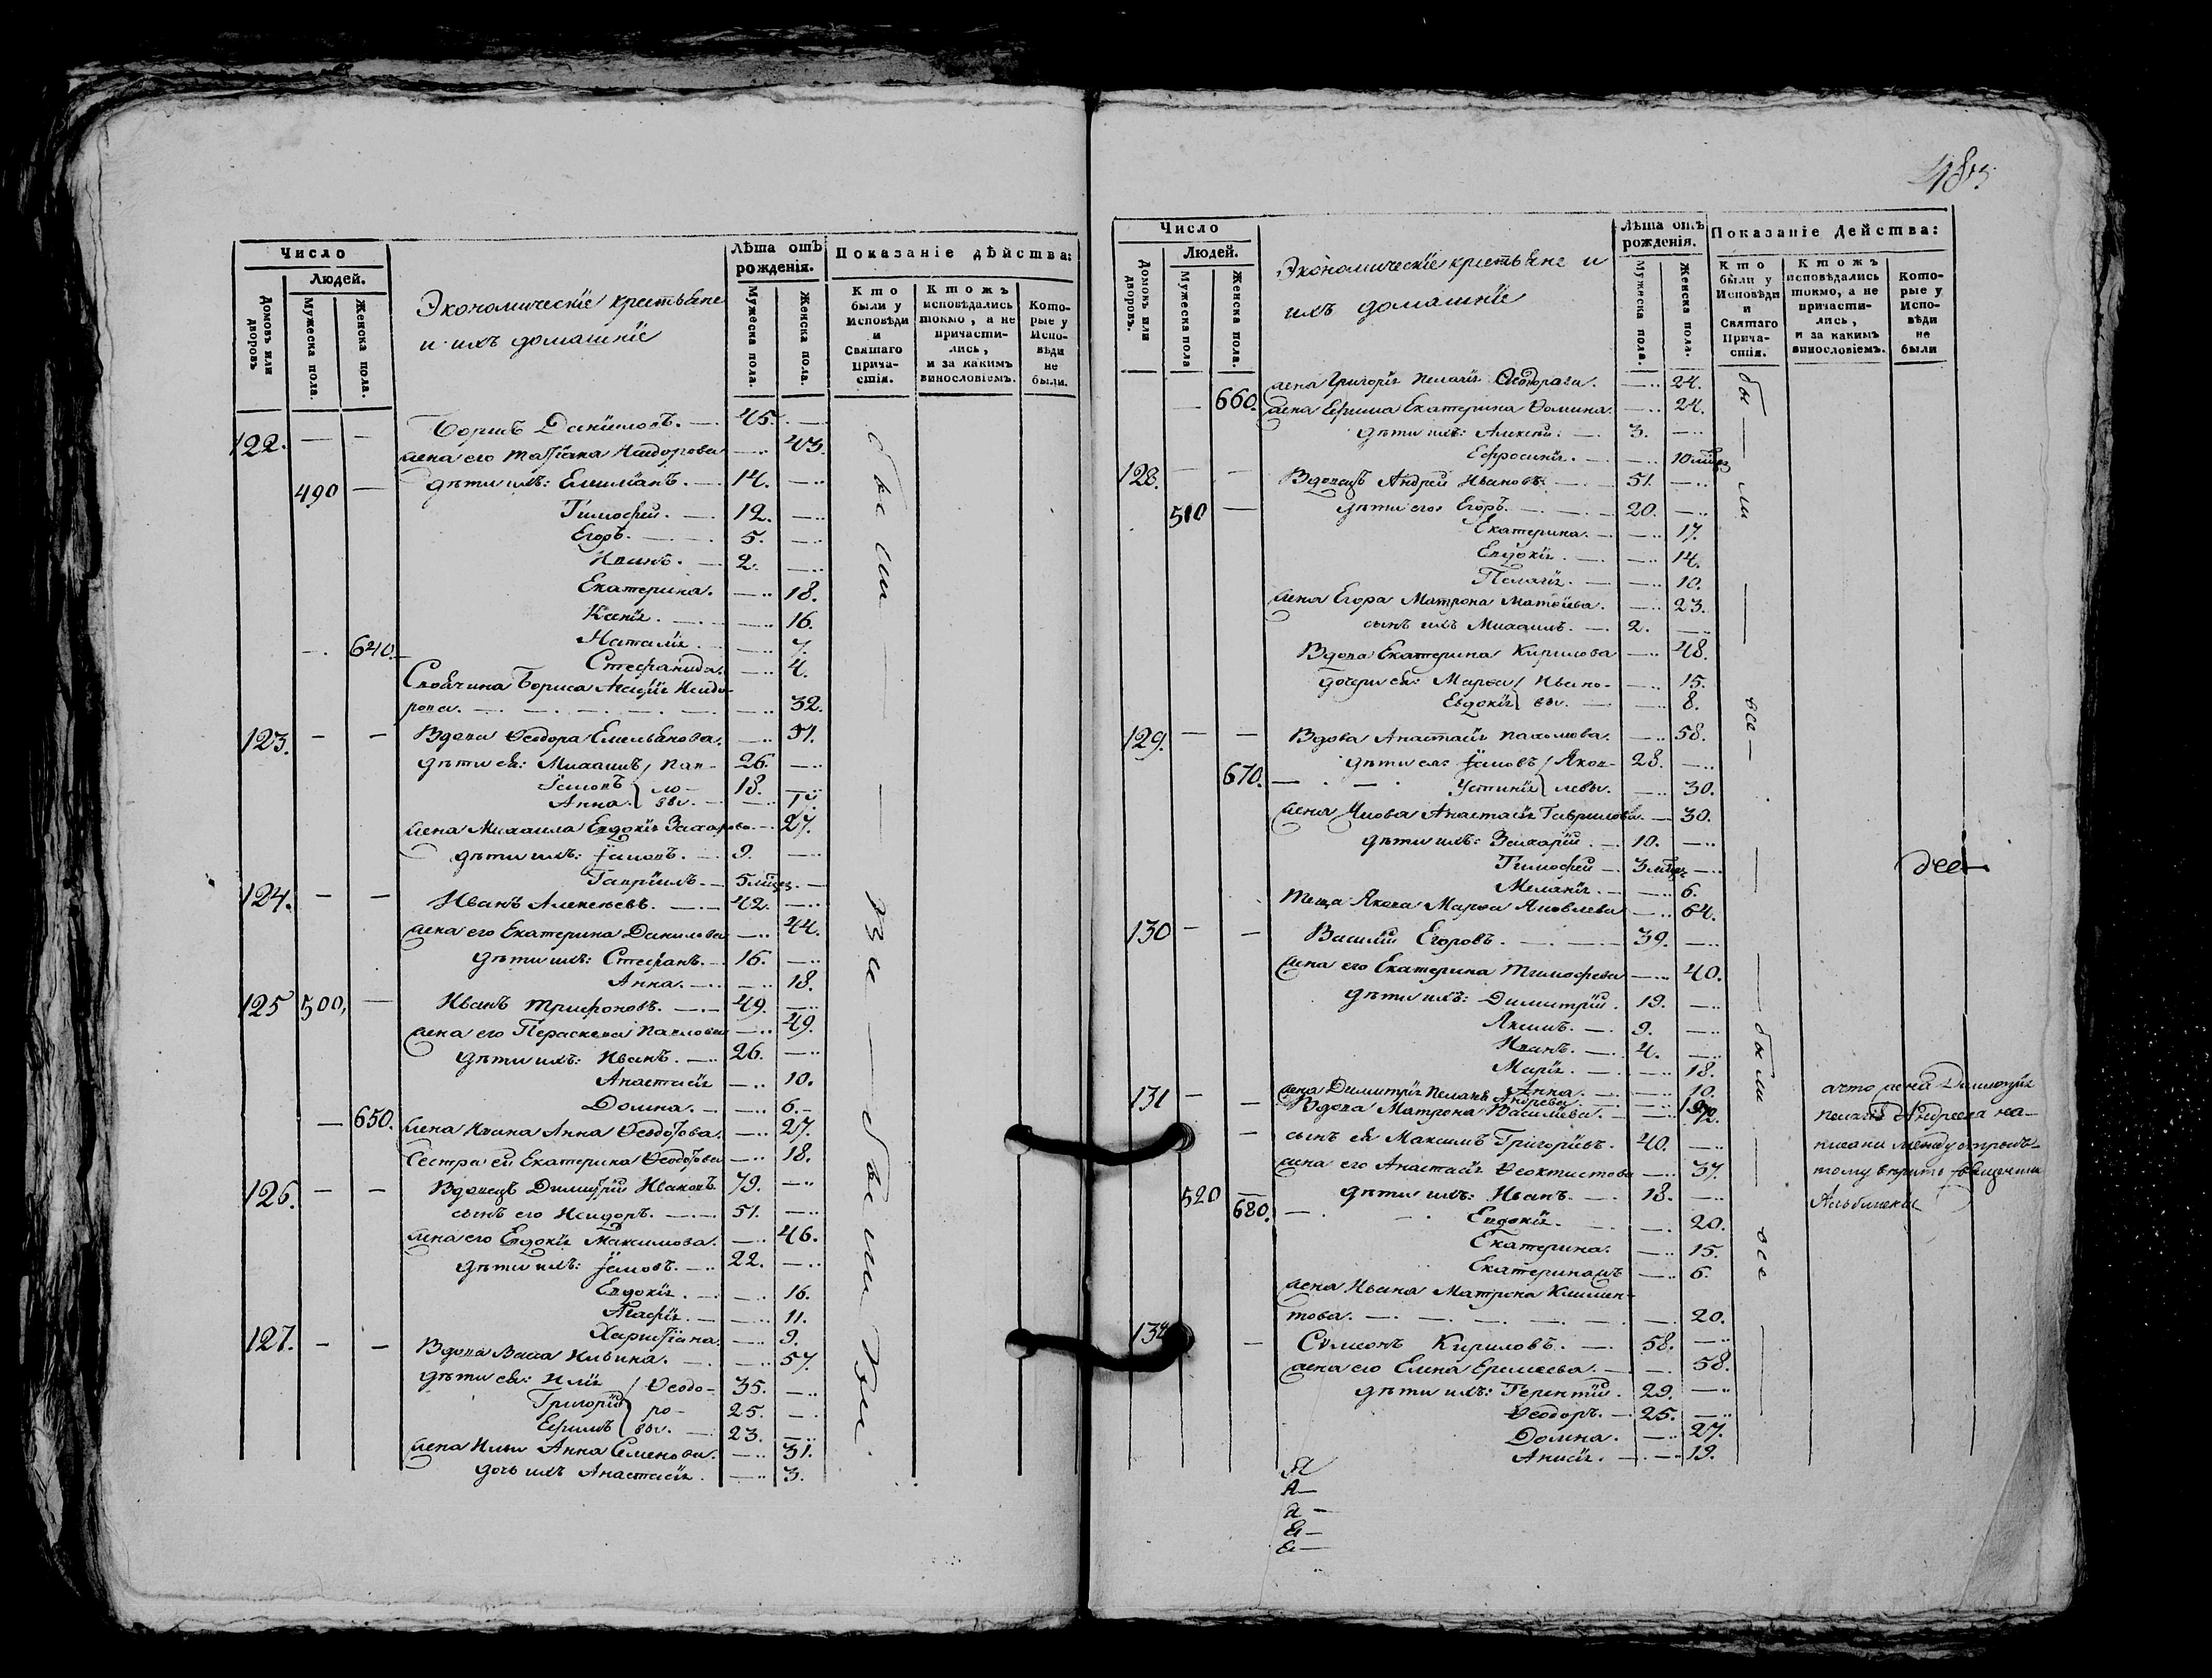 Число
Людей.
Домовъ или дворовъ
Мужеска пола.
Женска пола.
Экономическіе крестьяне
и ихъ домашніе
Лѣта отъ рожденія.
Мужеска пола.
Женска пола.
Показаніе дѣйства:
Кто были у Исповѣди и Святаго Прича-стія.
Ктожъ исповѣдались токмо, а не причасти-лись, и за какимъ винословіемъ.
Кото-рые у Испо-вѣди не были.
122. Борисъ Даниловъ. 45.
жена его Татіана Исидорова 43.
490 дѣти ихъ: Емиліанъ. 14.
Тимофей. 12.
Егоръ. 5.
Иванъ. 2.
Екатерина. 18.
Ксенія. 16.
Наталія. 7.
640. Стефанида. 4.
Своячина Бориса Исидо-
рова. 32.
123. Вдова Ѳеодора Емельянова. 51.
дѣти ея: Михаилъ Пав- 26.
Іаковъ ло- 18.
Анна вы.
жена Михаила Евдокія Захарова 27.
дѣти ихъ: Іаковъ. 9.
Гавріилъ. 5 мѣсяц.
124. Иванъ Алексѣевъ. 42.
жена его Екатерина Данилова 44.
дѣти ихъ: Стефанъ. 16.
Анна. 18.
125 500, Иванъ Трифоновъ. 49.
жена его Параскева Павлова 49.
дѣти ихъ: Иванъ. 26.
Анастасія 10.
Домна. 6.
650. жена Ивана Анна Ѳеодотова. 27.
Сестра ей Екатерина Ѳеодотова 18.
126. Вдовецъ Димитрій Ивановъ. 79.
сынъ его Исидоръ. 51.
жена его Евдокія Максимова. 46.
дѣти ихъ: Іаковъ. 22.
Евдокія. 16.
Агафія. 11.
Харитіана. 9.
127. Вдова Васса Ильина. 57.
дѣти ея: Илія Ѳеодо- 35.
Григорій ро- 25.
Ефимъ вы. 23.
жена Ильи Анна Семенова. 31.
дочь ихъ Анастасія. 3.
были
были
485
Число
Людей.
Домовъ или дворовъ.
Мужеска пола
Женска пола.
Экономическіе крестьяне и
ихъ домашніе
Лѣта отъ рожденія.
Мужеска пола.
Женска пола.
Показаніе Действа:
Кто были у Исповѣди и Святаго Прича-стія.
Ктожъ исповѣдались токмо, а не причасти-лись, и за какимъ винословіемъ.
Кото-рые у Испо-вѣди не были
жена Григорія Пелагія 24.
660. жена Ефима Екатерина Фомина. 24.
дѣти ихъ: Алексѣй. 3.
Ефросинія. 10 мѣсяц
128. Вдовецъ Андрей Ивановъ. 51.
510 дѣти его: Егоръ. 20.
Екатерина. 17.
Евдокія. 14.
Пелагія. 10.
жена Егора Матрона Матѳіева. 23.
сынъ ихъ Михаилъ. 2.
Вдова Екатерина Кирилова 48.
дочери ея: Марѳа Ивано- 15.
Евдокія вы. 8.
129. Вдова Анастасія Пахомова. 58.
дѣти ея: Іаковъ Яков- 28.
670. Устинія левы. 30.
жена Якова Анастасія Гаврилова. 30.
дѣти ихъ: Захарій. 10.
Тимофей 3 мѣсяц
Меланія. 6.
теща Якова Марѳа Яковлева 64.
130 Василій Егоровъ. 39.
жена его Екатерина Тимофеева 40.
дѣти ихъ: Димитрій. 19.
Якимъ. 9.
Иванъ. 4.
Марія. 18.
Анна. 10.
жена Димитрія Пелагія Андреева
131 Вдова Матрона Василіева.
сынъ ея Максимъ Григорьевъ. 40.
жена его Анастасія Ѳеоктистова 37.
520 дѣти ихъ: Иванъ. 18.
680. Евдокія. 20.
Екатерина. 15.
Екатерина 6.
жена Ивана Матрона Климен-
това. 20.
Сѵмеонъ Кириловъ. 58.
жена его Елена Еремеева. 58.
дѣти ихъ: Терентій. 29.
Ѳеодоръ. 25.
Домна. 27.
Анисія. 19.
бы ли
все
были
все
а что жена Димитрія
Пелагія Андреева на-
писана между строкъ
тому вѣрить